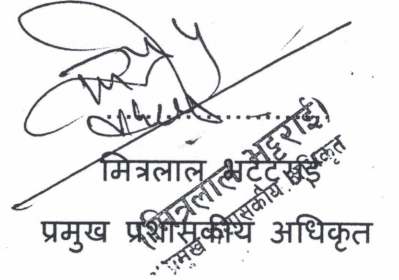 मित्रलाल भट्टराई
प्रमुख प्रशासकीय अधिकृत
(मित्रलाल भट्टराई)
प्रमुख प्रशासकीय अधिकृत